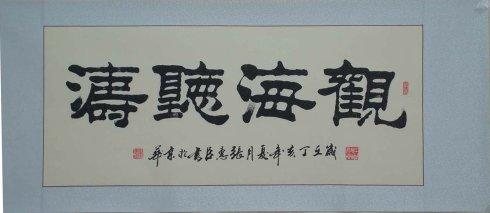 觀海聽濤
歲在丁亥年夏月張惠臣書於京華